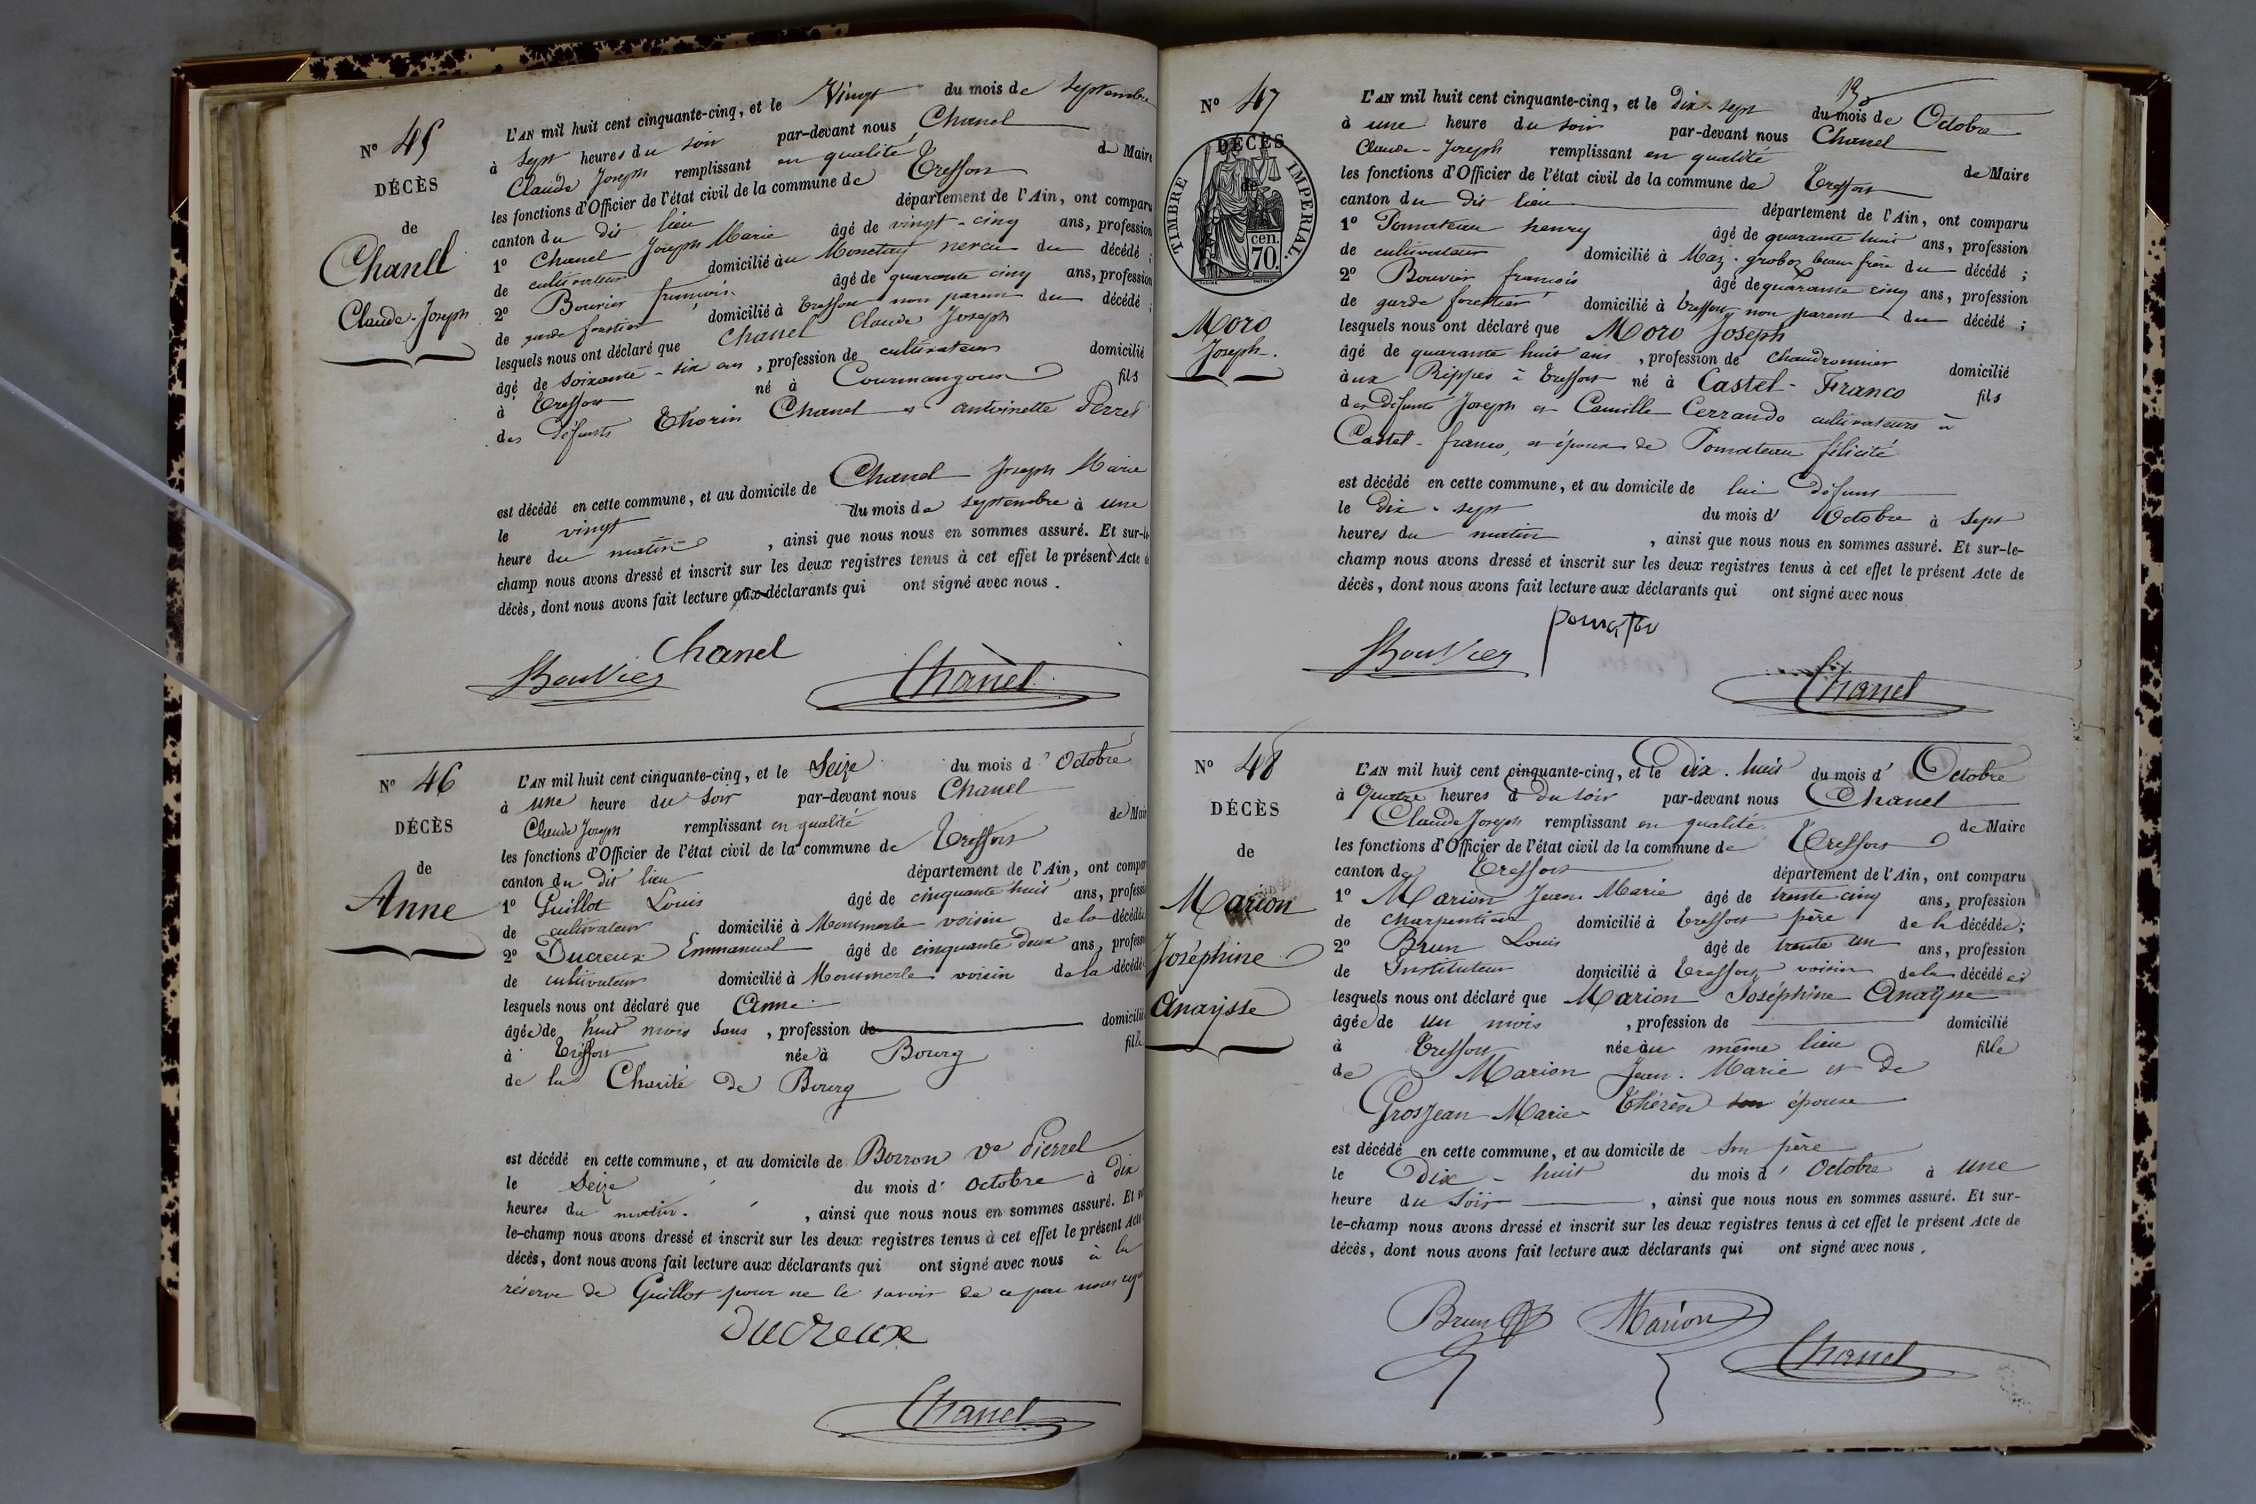 N° 45
DÉCÈS
de
Chanel
Claude-Joseph
L'AN mil huit cent cinquante-cinq, et le Vingt du mois de Septembre
à Sept heures du soir par-devant nous Chanel
Claude Joseph remplissant en qualité de Maire
les fonctions d'Officier de l'état civil de la commune de Treffort
canton du dit lieu département de l'Ain, ont comparu
1° Chanel Joseph Marie âgé de vingt-cinq ans, profession
de cultivateur domicilié au neveu du décédé ;
2° Bouvier françois âgé de quarante cinq ans, profession
de garde forestier domicilié à Treffort non parent du décédé ;
lesquels nous ont déclaré que Chanel Claude Joseph
âgé de soixante-six ans, profession de cultivateur domicilié
à Treffort né à Courmangoux fils
des défunts Thorin Chanel et antoinette Perret
est décédé en cette commune, et au domicile de Chanel Joseph Marie
le vingt du mois de septembre à une
heure du matin, ainsi que nous nous en sommes assuré. Et sur-le-
champ nous avons dressé et inscrit sur les deux registres tenus à cet effet le présent Acte de
décès, dont nous avons fait lecture aux déclarants qui ont signé avec nous.
Chanel
Bouvier Chanel
N° 46
DÉCÈS
de
Anne
L'AN mil huit cent cinquante-cinq, et le Seize du mois d'Octobre
à une heure du soir par-devant nous Chanel
Claude Joseph remplissant en qualité de Mair
les fonctions d'Officier de l'état civil de la commune de Treffort
canton du dit lieu département de l'Ain, ont compar
1° Guillot Louis âgé de cinquante huit ans, professi
de cultivateur domicilié à Montmerle voisin de la décédée
2° Ducreux Emmanuel âgé de cinquante deux ans, profess
de cultivateur domicilié à Montmerle voisin de la décédé
lesquels nous ont déclaré que Anne
âgée de huit mois sans, profession de domicilié
à Treffort née à Bourg fille
de la Charité de Bourg
est décédé en cette commune, et au domicile de Borron Ve Pierrel
le Seize du mois d'octobre à dix
heures du matin, ainsi que nous nous en sommes assuré. Et sur
le-champ nous avons dressé et inscrit sur les deux registres tenus à cet effet le présent Acte
décès, dont nous avons fait lecture aux déclarants qui ont signé avec nous à la
réserve de Guillot pour ne le savoir de ce par nous
Ducreux
Chanel
N° 47
DÉCÈS
de
TIMBRE IMPERIAL.
70 cen.
Moro
Joseph.
L'AN mil huit cent cinquante-cinq, et le Dix-sept du mois de Octobre
à une heure du soir par-devant nous Chanel
Claude-Joseph remplissant en qualité de Maire
les fonctions d'Officier de l'état civil de la commune de Treffort
canton du dit lieu département de l'Ain, ont comparu
1° Pomateau henry âgé de quarante huit ans, profession
de cultivateur domicilié à beau frère du décédé ;
2° Bouvier françois âgé de quarante cinq ans, profession
de garde forestier domicilié à Treffort non parent du décédé ;
lesquels nous ont déclaré que Moro Joseph
âgé de quarante huit ans, profession de chaudronnier domicilié
aux Rippes à Treffort né à Castel-Franco fils
des défunts Joseph et Camille Cerrando cultivateurs à
Castel-franco, et époux de Pomateau félicité
est décédé en cette commune, et au domicile de lui défunt
le Dix-sept du mois d'Octobre à Sept
heures du matin, ainsi que nous nous en sommes assuré. Et sur-le-
champ nous avons dressé et inscrit sur les deux registres tenus à cet effet le présent Acte de
décès, dont nous avons fait lecture aux déclarants qui ont signé avec nous
Bouvier
Chanel
N° 48
DÉCÈS
de
Marion
Joséphine
Anaÿsse
L'AN mil huit cent cinquante-cinq, et le Dix-huit du mois d'Octobre
à Quatre heures d Du soir par-devant nous Chanel
Claude Joseph remplissant en qualité de Maire
les fonctions d'Officier de l'état civil de la commune de Treffort
canton de Treffort département de l'Ain, ont comparu
1° Marion Jean Marie âgé de trente cinq ans, profession
de charpentier domicilié à Treffort père de la décédée ;
2° Brun Louis âgé de trente un ans, profession
de Instituteur domicilié à Treffort voisin de la décédée
lesquels nous ont déclaré que Marion Joséphine Anaÿsse
âgée de un mois, profession de domicilié
à Treffort née au même lieu fille
de Marion Jean-Marie et de
Grosjean Marie-Thérèse son épouse
est décédé en cette commune, et au domicile de Son père
le Dix-huit du mois d'Octobre à une
heure du Soir, ainsi que nous nous en sommes assuré. Et sur-
le-champ nous avons dressé et inscrit sur les deux registres tenus à cet effet le présent Acte de
décès, dont nous avons fait lecture aux déclarants qui ont signé avec nous.
Brun Marion
Chanel